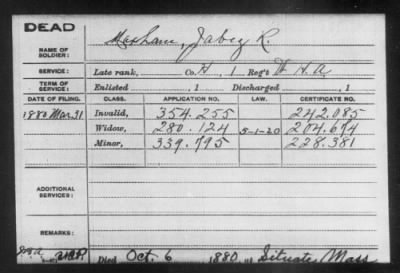 DEAD
NAME OF SOLDIER: Maxham, Jabez R.
SERVICE: Late rank, Co. H, 1 Reg't H.A.
TERM OF SERVICE: Enlisted , 1 Discharged , 1
DATE OF FILING. CLASS. APPLICATION NO. LAW. CERTIFICATE NO.
1880 Mar. 31 Invalid, 354.255 242.085
Widow, 280.124 5-1-20 204.674
Minor, 339.795 228.381
ADDITIONAL SERVICES:
REMARKS:
Died Oct. 6 1880, at Situate, Mass